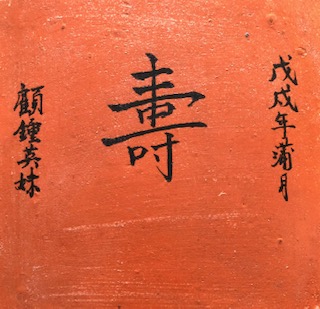 戊戌年蒲月
壽
顧鍾英妹